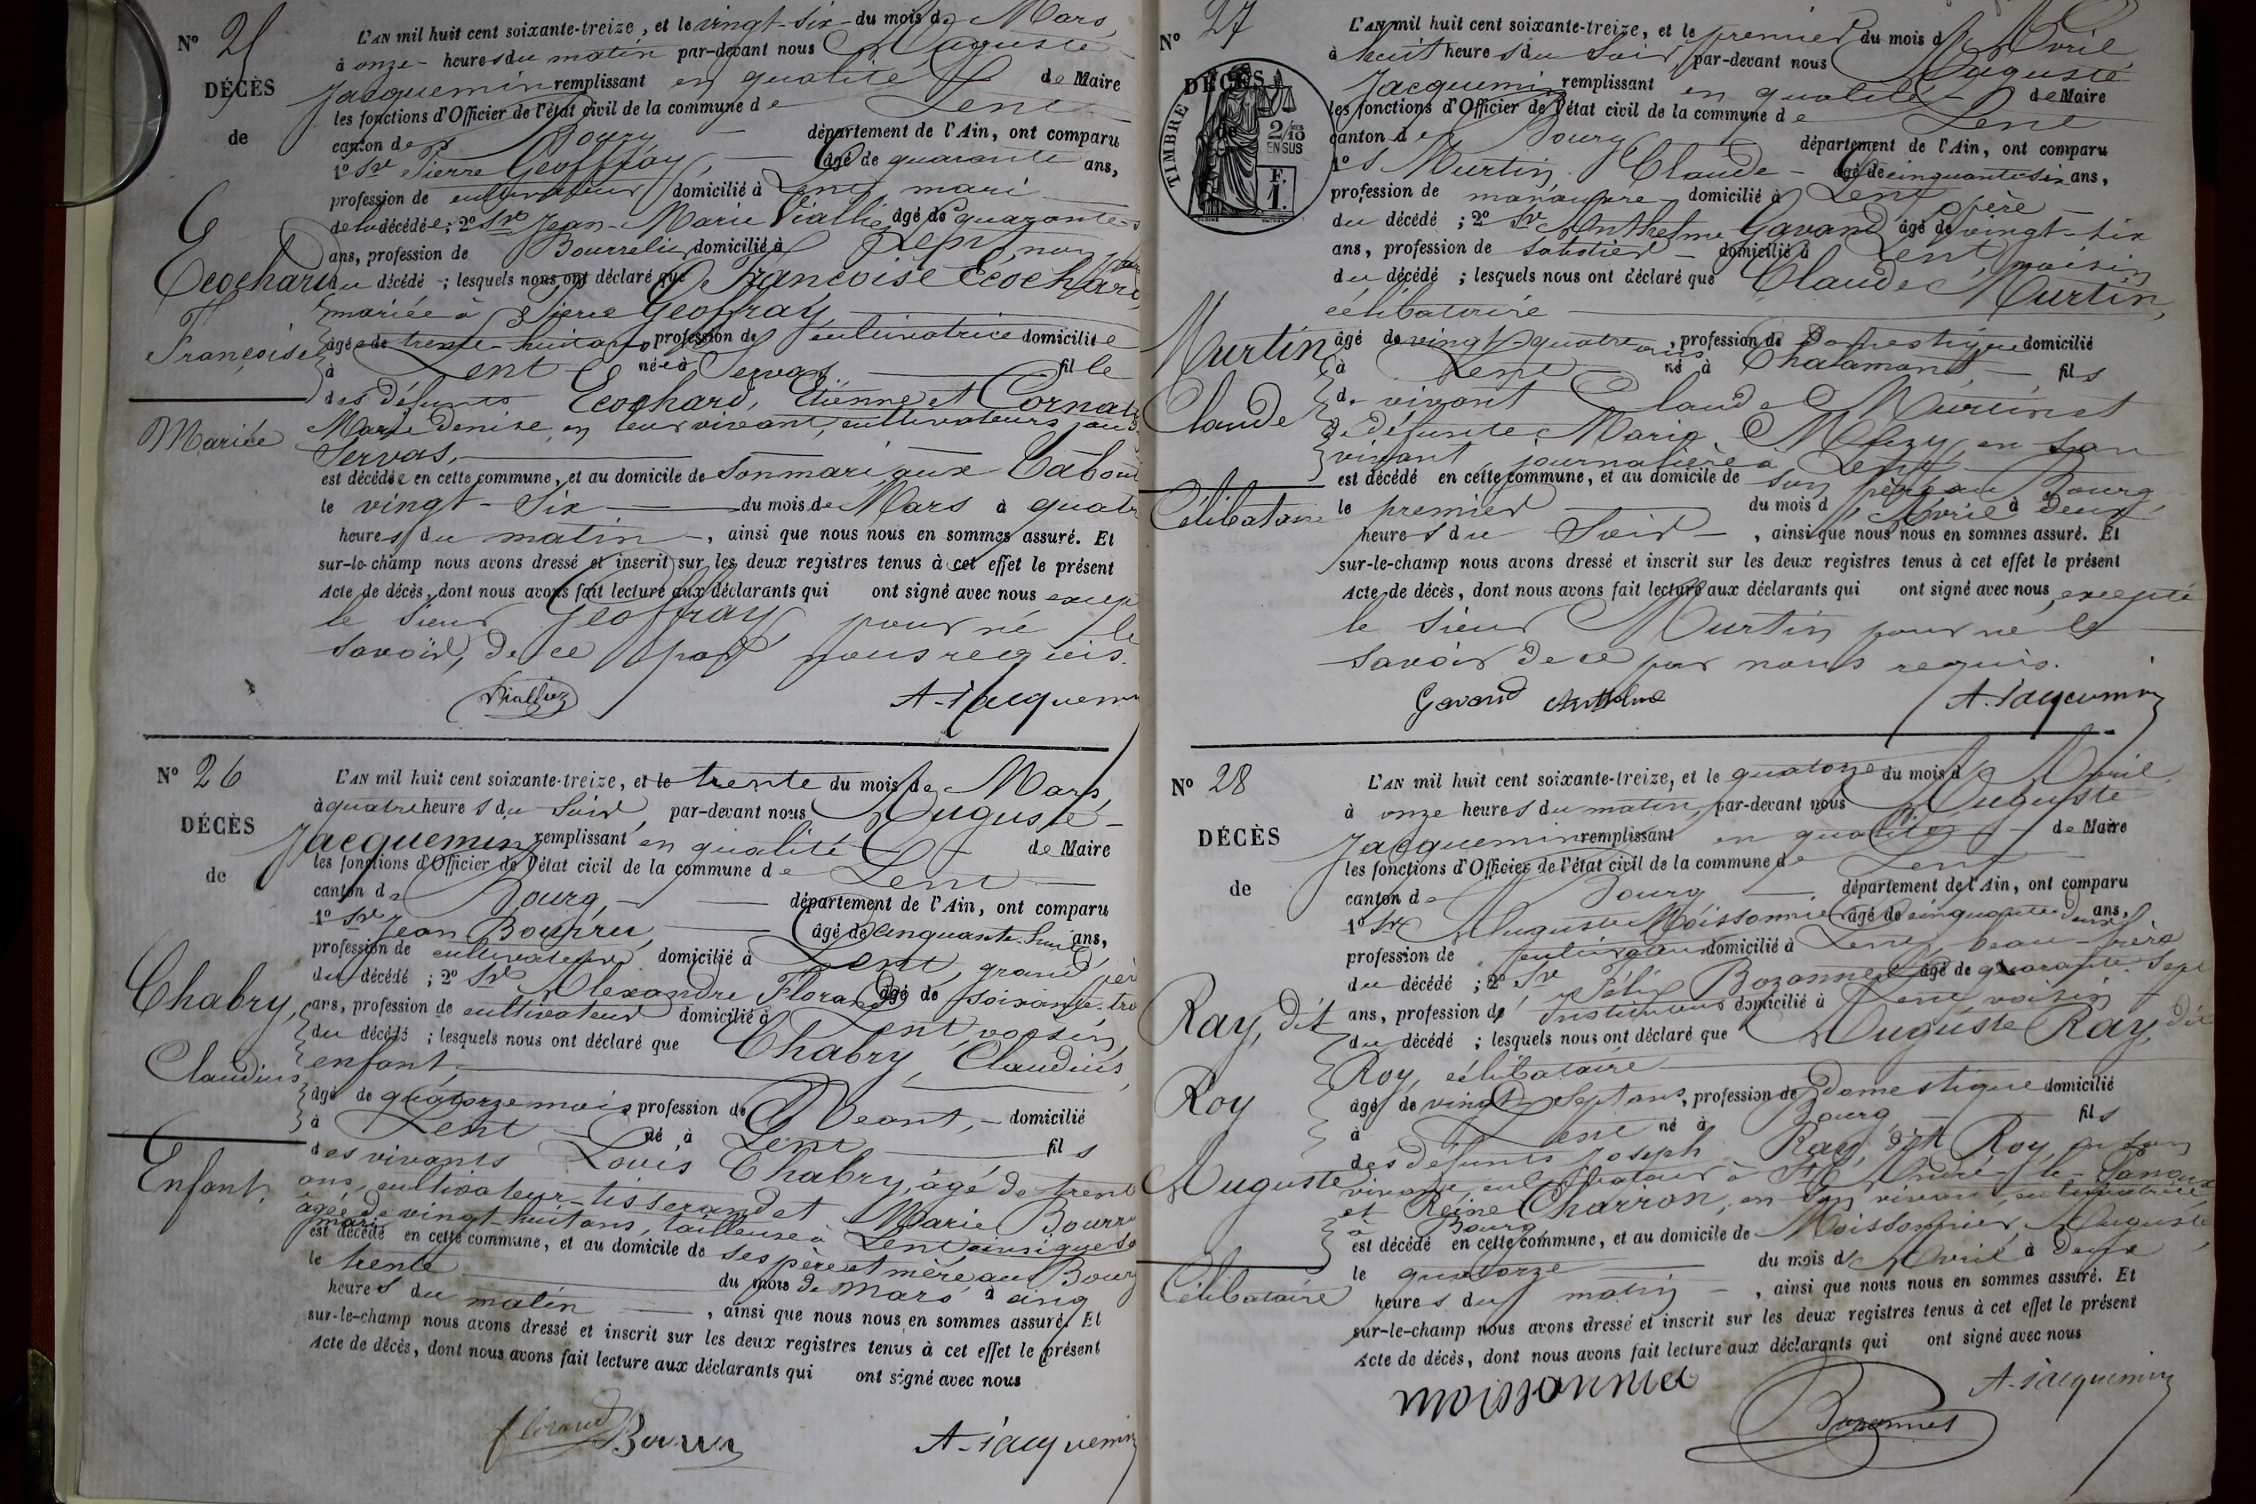 Nº 25
DÉCÈS
de
Ecochard
Françoise
Mariée
L'AN mil huit cent soixante-treize, et le vingt-six du mois de Mars,
à onze heures du matin par-devant nous Auguste
Jacquemin remplissant en qualité de Maire
les fonctions d'Officier de l'état civil de la commune de Lent
canton de Bourg département de l'Ain, ont comparu
1º Sr Pierre Geoffray, âgé de quarante ans,
profession de cultivateur domicilié à Lent, mari
de la décédée; 2º Sr Jean-Marie Viallier âgé de quarante
ans, profession de Bourrelier domicilié à Lent, non
du décédé; lesquels nous ont déclaré que Françoise Ecochard
mariée à Pierre Geoffray,
âgée de trente-huit ans profession de cultivatrice domiciliée
à Lent née à Servas fille
des défunts Ecochard, Etienne et Cornat
Marie Denise, en leur vivant, cultivateurs
Servas,
est décédée en cette commune, et au domicile de son mari aux
le vingt-six du mois de Mars à quatr
heures du matin, ainsi que nous nous en sommes assuré. Et
sur-le-champ nous avons dressé et inscrit sur les deux registres tenus à cet effet le présent
Acte de décès, dont nous avons fait lecture aux déclarants qui ont signé avec nous excep
le sieur Geoffray, pour ne le
savoir, de ce par nous requis.
Viallier A. Jacquemin
Nº 26
DÉCÈS
de
Chabry,
Claudius
Enfant.
L'AN mil huit cent soixante-treize, et le trente du mois de Mars,
à quatre heures du soir, par-devant nous Auguste
Jacquemin remplissant en qualité de Maire
les fonctions d'Officier de l'état civil de la commune de Lent
canton de Bourg, département de l'Ain, ont comparu
1º Sr Jean Bourru, âgé de cinquante-huit ans,
profession de cultivateur domicilié à Lent, grand père
du décédé; 2º Sr Alexandre Florand âgé de soixante-tro
ans, profession de cultivateur domicilié à Lent, voisin,
du décédé; lesquels nous ont déclaré que Chabry, Claudius,
enfant,
âgé de quatorze mois profession de Néant, domicilié
à Lent né à Lent fils
des vivants Louis Chabry, âgé de trent
ans, cultivateur-tisserand et Marie Bourru
âgée de vingt-huit ans, tailleuse à Lent ainsi que so
mari
est décédé en cette commune, et au domicile de ses père et mère au Bourg
le trente du mois de Mars à cinq
heures du matin, ainsi que nous nous en sommes assuré. Et
sur-le-champ nous avons dressé et inscrit sur les deux registres tenus à cet effet le présent
Acte de décès, dont nous avons fait lecture aux déclarants qui ont signé avec nous
florand Bourru A. Jacquemin
Nº 27
DÉCÈS
de
TIMBRE
2/10
EN SUS
F.
1.
Murtin
Claude
Célibataire
L'AN mil huit cent soixante-treize, et le premier du mois d'Avril
à huit heures du soir, par-devant nous Auguste
Jacquemin remplissant en qualité de Maire
les fonctions d'Officier de l'état civil de la commune de Lent
canton de Bourg département de l'Ain, ont comparu
1º S Murtin Claude âgé de cinquante-six ans,
profession de manœuvre domicilié à Lent, père
du décédé; 2º Sr Anthelme Gavand âgé de vingt-six
ans, profession de sabotier domicilié à Lent, voisin
du décédé; lesquels nous ont déclaré que Claude Murtin,
célibataire
âgé de vingt-quatre ans, profession de Domestique domicilié
à Lent né à Chalamont, fils
de vivant Claude Murtin et
de défunte Marie en son
vivant journalière à Lent,
est décédé en cette commune, et au domicile de son père, au Bourg
le premier du mois d'Avril à deux
heures du soir, ainsi que nous nous en sommes assuré. Et
sur-le-champ nous avons dressé et inscrit sur les deux registres tenus à cet effet le présent
Acte de décès, dont nous avons fait lecture aux déclarants qui ont signé avec nous, excepté
le sieur Murtin pour ne le
savoir de ce par nous requis.
Gavand Anthelme A. Jacquemin
Nº 28
DÉCÈS
de
Ray, dit
Roy
Auguste
Célibataire
L'AN mil huit cent soixante-treize, et le quatorze du mois d'Avril,
à onze heures du matin, par-devant nous Auguste
Jacquemin remplissant en qualité de Maire
les fonctions d'Officier de l'état civil de la commune de Lent
canton de Bourg département de l'Ain, ont comparu
1º Sr Auguste Moissonnier âgé de cinquante deux ans,
profession de cultivateur domicilié à Lent, beau-frère
du décédé; 2º Sr Félix Bozonnet âgé de quarante-sept
ans, profession de Instituteur domicilié à Lent, voisin
du décédé; lesquels nous ont déclaré que Auguste Ray, dit
Roy, célibataire
âgé de vingt-sept ans, profession de domestique domicilié
à Lent né à Bourg, fils
des défunts Joseph Ray, dit Roy, en son
vivant, cultivateur à St André-le-Panoux
et Reine Charron, en son vivant, cultivatrice
à Bourg
est décédé en cette commune, et au domicile de Moissonnier, Auguste,
le quatorze du mois d'Avril à deux
heures du matin, ainsi que nous nous en sommes assuré. Et
sur-le-champ nous avons dressé et inscrit sur les deux registres tenus à cet effet le présent
Acte de décès, dont nous avons fait lecture aux déclarants qui ont signé avec nous
moissonnier Bozonnet A. Jacquemin